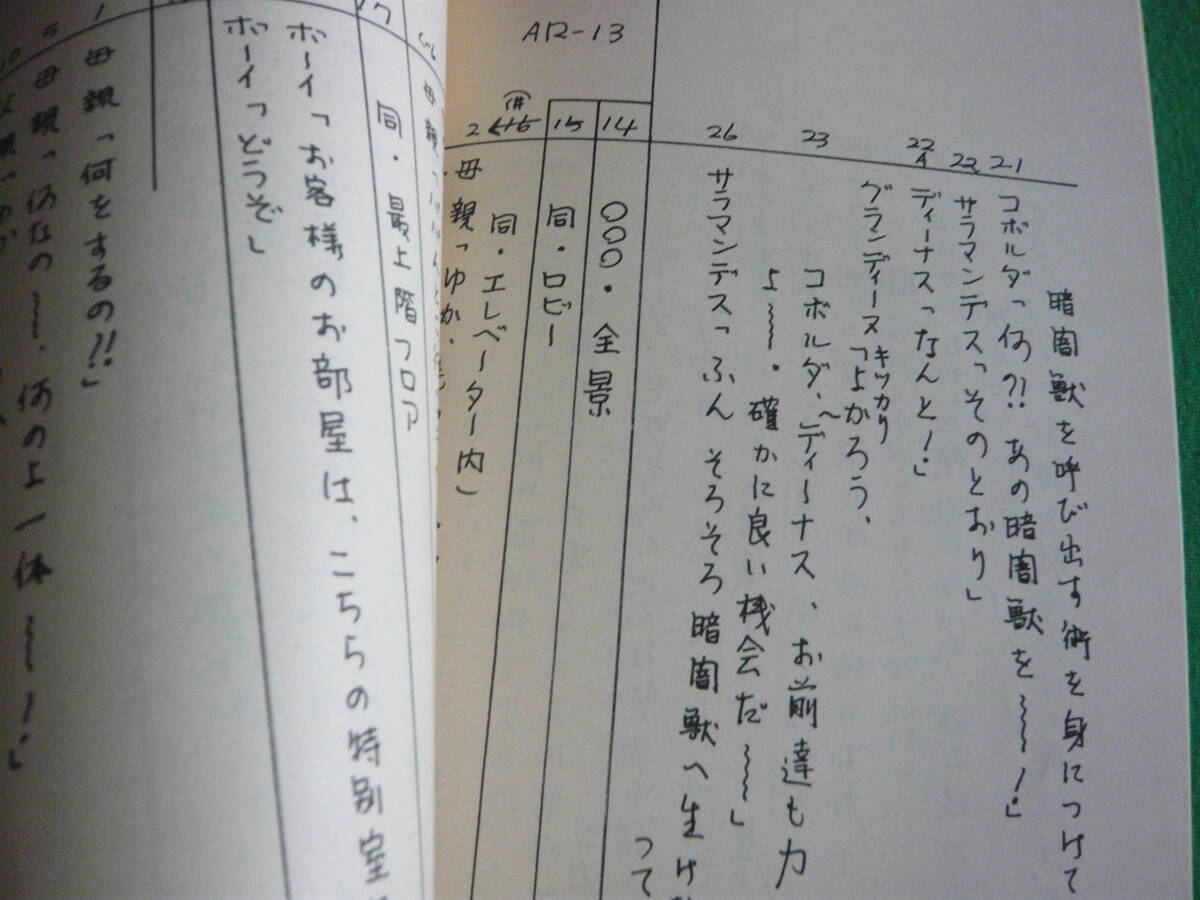 AR-13
暗闇獣を呼び出す術を身につけて
21 コボルダ「何?! あの暗闇獣を〜〜!」
22 サラマンデス「そのとおり」
22A ディーナス「なんと!」
グランディーヌ「よかろう、
キッカリ
23 コボルダ、ディーナス、お前達も力
よ〜〜。確かに良い機会だ〜〜」
26 サラマンデス「ふん そろそろ暗闇獣へ生け
って
14 〇〇〇・全景
15 同・ロビー
同・エレベーター内
2 母親「ゆか、
母親「
17 同・最上階フロア
ボーイ「お客様のお部屋は、こちらの特別室
ボーイ「どうぞ」
1 母親「何をするの!!」
5 母親「何なの〜、何のよ一体〜!」